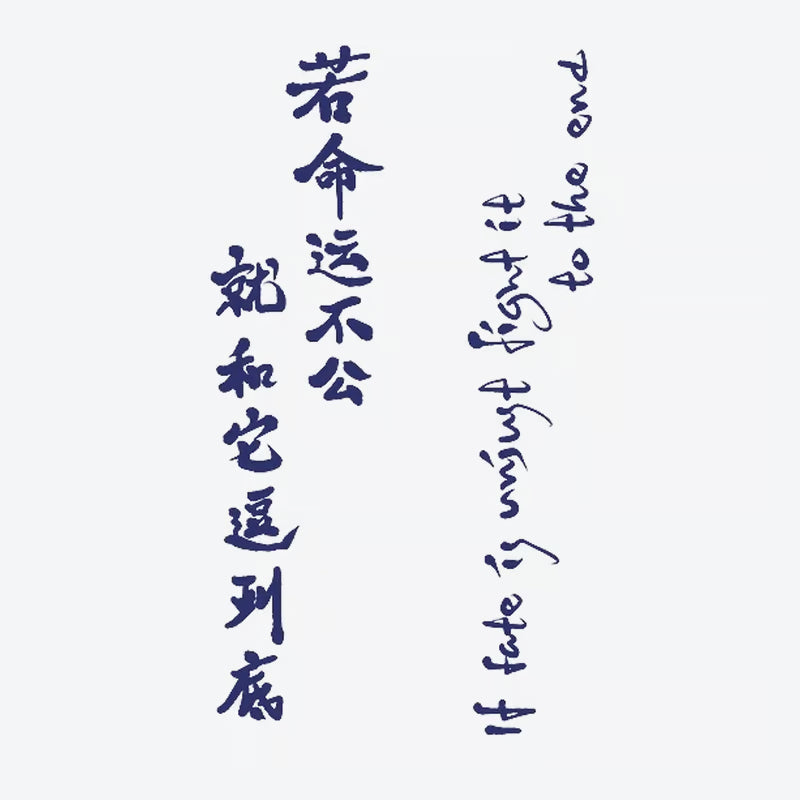 若命运不公
就和它逗到底
If fate is unjust fight it
to the end